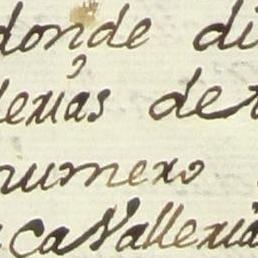 donde di
lerias de
numero
caValleria